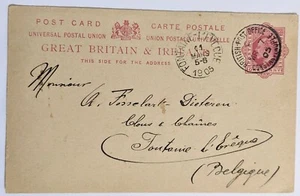 POST CARD CARTE POSTALE
UNIVERSAL POSTAL UNION UNION POSTALE UNIVERSELLE
GREAT BRITAIN &
THIS SIDE FOR THE ADDRESS
11
5-6
1905
Monsieur
A. Dieteren
Clous & Chaînes
Fontaine l'Evêque
(Belgique)